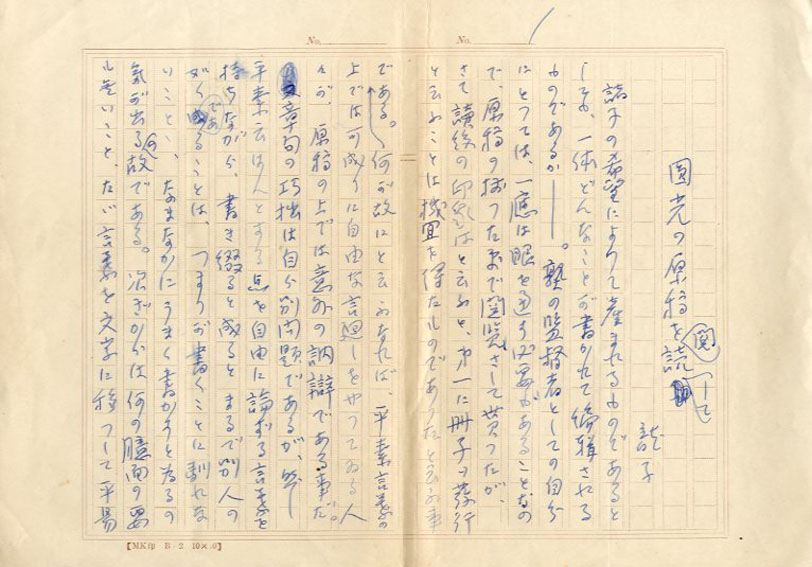 No.
No.
の原稿を読
閲一して
諸子の希望によりて産まれるものであると
しても、一体どんなことが書かれて編輯される
ものであるか――。塾の監督者としての自分
にとつては、一応は眼を通す必要があることなの
で、原稿の揃つたまで閲覧さして貰つたが、
さて讀後の印象はと云ふと、第一に冊子の発行
と云ふことは機宜を得たものであつたと云ふ事
である。何が故にと云ふなれば、平素言葉の
上では可成りに自由な言廻しをやつてゐる人
々が、原稿の上では意外の訥辯である事だ。
章句の巧拙は自ら別問題であるが、
平素云はんとする点を自由に論ずる言葉を
持ちながら、書き綴ると成るとまるで別人の
如くであることは、つまりが書くことに馴れな
いことゝ、なまなかにうまく書かうと為るの
気が出る故である。何の臆面の要
も無いこと、たゞ言葉を文字に移つして平易
【MK印 B-2 10×20】